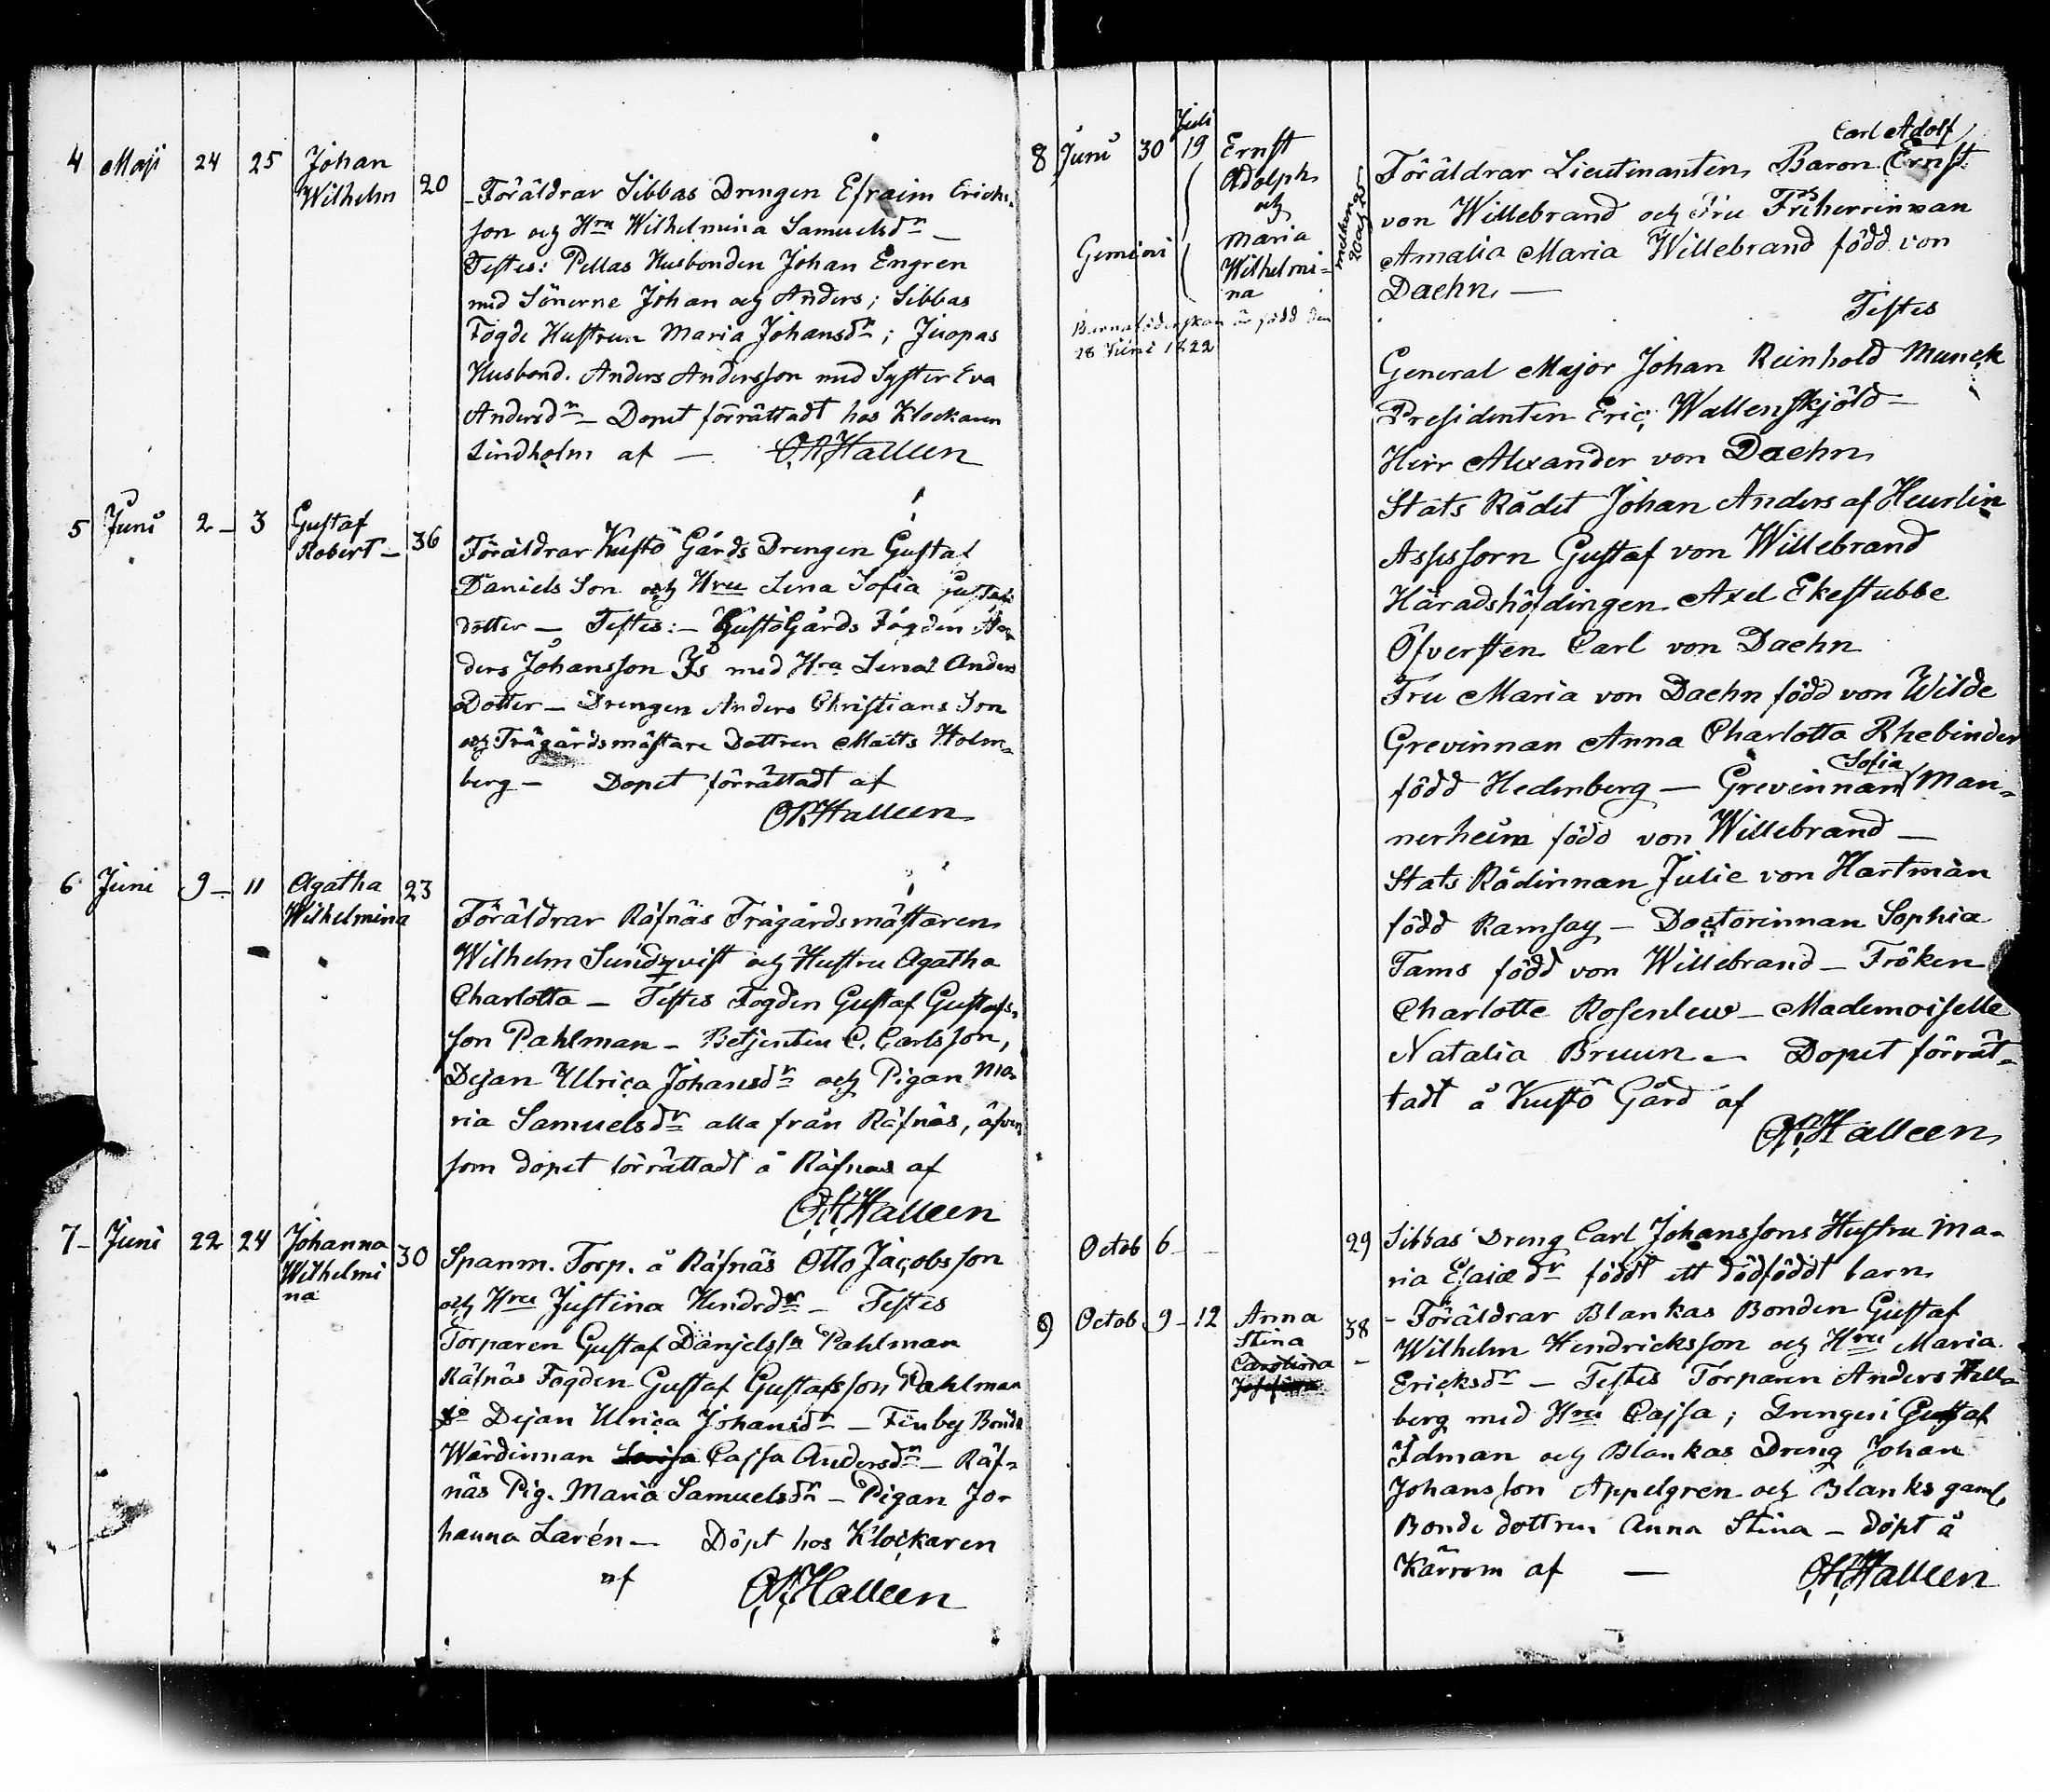 4 Maji 24 25 Johan
Wilhelm 20
Föräldrar Sibbas Drengen Efraim Erichs-
son och Hru Wilhelmina Samuelsdr —
Testes: Pellas Husbonden Johan Engren
med Sönerne Johan och Anders; Sibbas
Fogde Hustrun Maria Johansdr; Juopas
Husbond. Anders Andersson med Syster Eva
Andersdr — Dopet förrättadt hos Klockaren
Lindholm af — Halleen
5 Juni 2 — 3 Gustaf
Robert — 36
Föräldrar Kustö Gårds Drengen Gustaf
Daniels Son och Hru Lena Sofia Gustafs
dotter — Testes: — Gustö Gårds Fogden An-
ders Johansson Is med Hru Lena Anders
Dotter — Drengen Anders Christians Son
och Trägårdsmästare Dottren Matts Holm-
berg — Dopet förrättadt af
Halleen
6 Juni 9 — 11 Agatha
Wilhelmina 23
Föräldrar Räfnäs Trägårdsmästaren
Wilhelm Sundqvist och Hustru Agatha
Charlotta — Testes Fogden Gustaf Gustafs-
son Pahlman — Betjenten C. Carlsson,
Dejan Ulrica Johansdr och Pigan Ma-
ria Samuelsdr alla från Räfnäs, äfven
som dopet förrättadt å Räfnäs af
Halleen
7 — Juni 22 24 Johanna
Wilhelmi
na 30
Spanm. Torp. å Räfnäs Otto Jacobsson
och Hru Justina Hendrdr — Testes
Torparen Gustaf Danjelssn Pahlman
Räfnäs Fogden Gustaf Gustafsson Pahlman
Do Dejan Ulrica Johansdr — Finby Bonde
Wärdinnan Lovisa Cajsa Andersdr — Räf-
näs Pig. Maria Samuelsdr — Pigan Jo-
hanna Larén — Döpt hos Klockaren
af Halleen
8 Juni 30 Juli 19 Ernst
Adolph
och
Maria
Wilhelmi-
na
Gemini
Barnaföderskan är född den
28 Juni 1822
mellan 20 och 25
Carl Adolf
Föräldrar Lieutenanten Baron Ernst
von Willebrand och Fru Friherrinnan
Amalia Maria Willebrand född von
Daehn —
Testes
General Major Johan Reinhold Munck
Presidenten Eric Wallenskjöld —
Herr Alexander von Daehn
Stats Rådet Johan Anders af Heurlin
Assessorn Gustaf von Willebrand
Häradshöfdingen Axel Ekestubbe
Öfversten Carl von Daehn
Fru Maria von Daehn född von Wilde
Grevinnan Anna Charlotta Rhebinder
född Hedenberg — Grevinnan Sofia Man-
nerheim född von Willebrand —
Stats Rådinnan Julie von Hartman
född Ramsay — Doctorinnan Sophia
Tams född von Willebrand — Fröken
Charlotte Rosenlew — Mademoiselle
Natalia Bruun — Dopet förrät-
tadt å Kustö Gård af
Halleen
Octob 6 — 29
Sibbas Dreng Carl Johanssons Hustru Ma-
ria Esaiædr födt ett dödföddt barn
9 Octob 9 — 12 Anna
Stina
Carolina
Josefina 38 —
— Föräldrar Blankas Bonden Gustaf
Wilhelm Hendricksson och Hru Maria
Ericksdr — Testes Torparen Anders Hell-
berg med Hru Cajsa; Drengen Gustaf
Idman och Blankas Dreng Johan
Johansson Appelgren och Blanks gaml.
Bonde dottren Anna Stina — döpt å
Kärrom af — Halleen